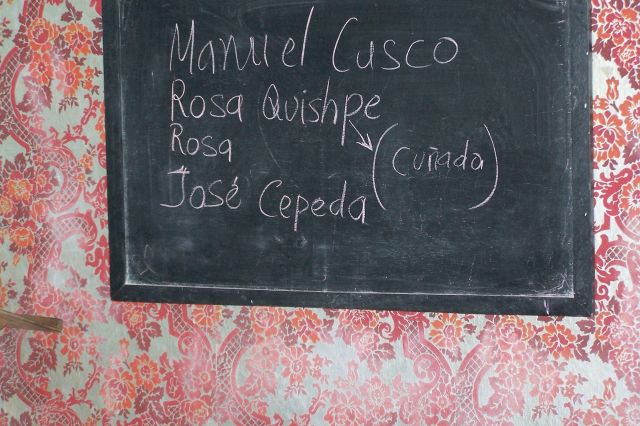 Manuel Cusco
Rosa Quishpe
Rosa (cuñada)
José Cepeda